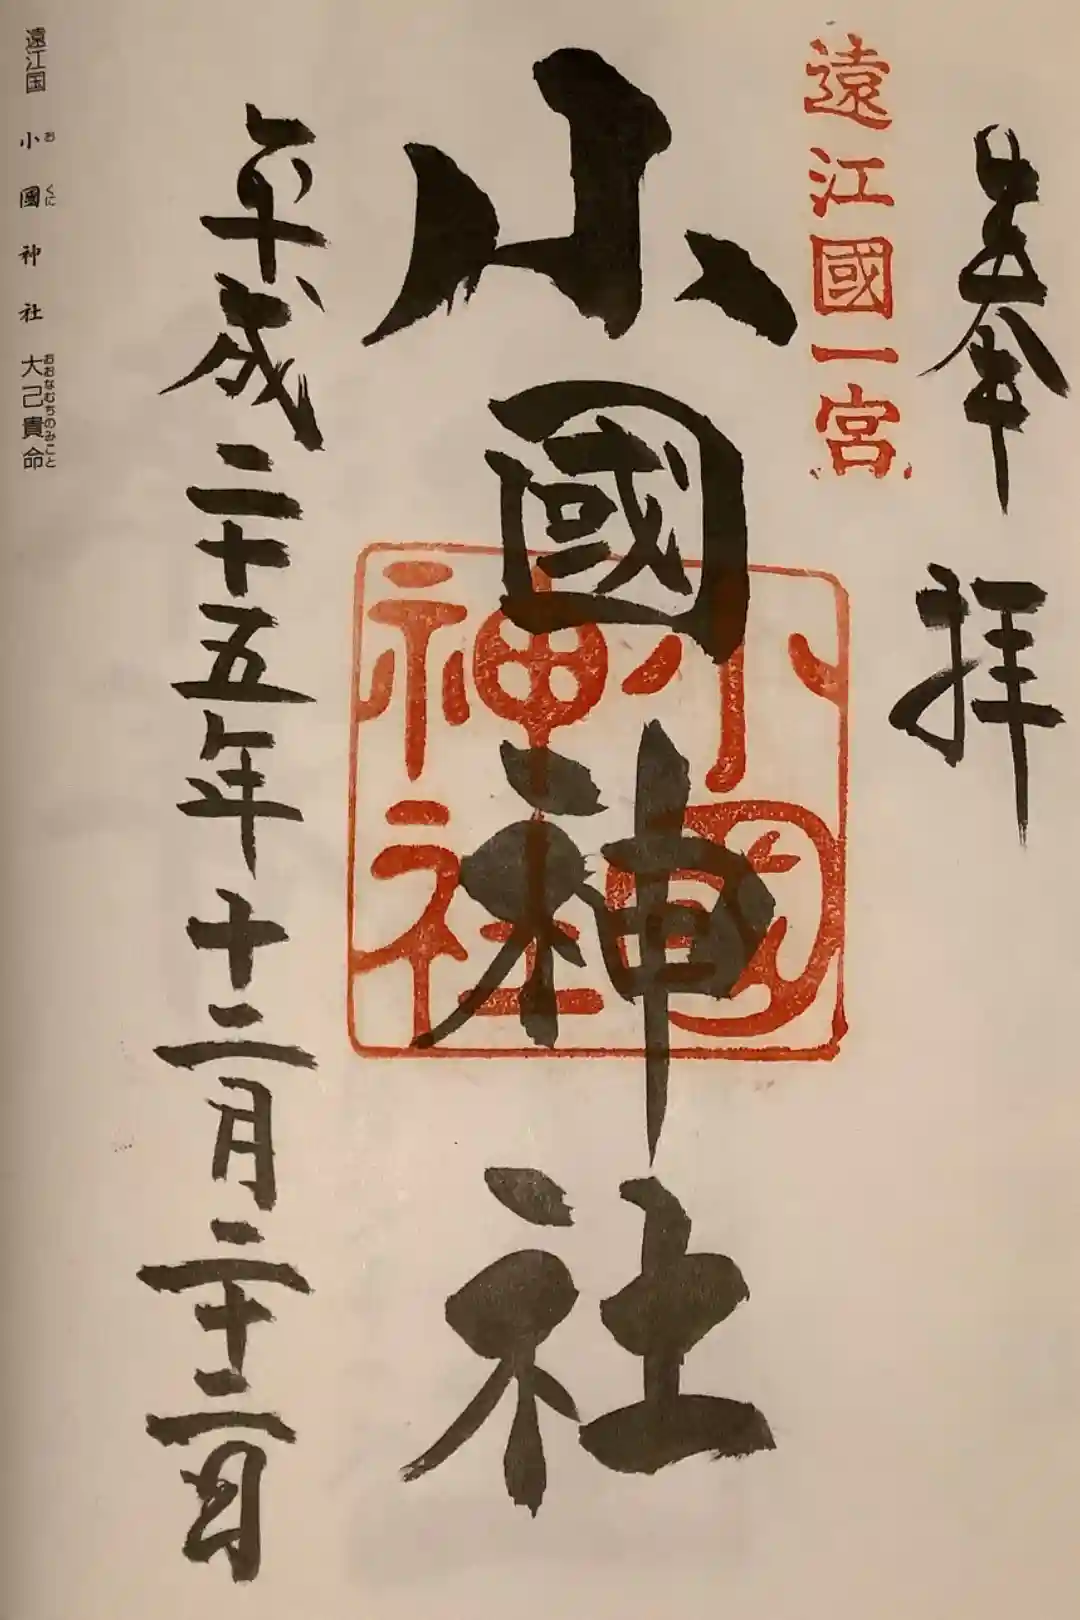 奉拝
遠江國一宮
小國神社
小國神社
平成二十五年十二月二十二日
遠江国 小國神社 大己貴命
お くに
おおなむちのみこと